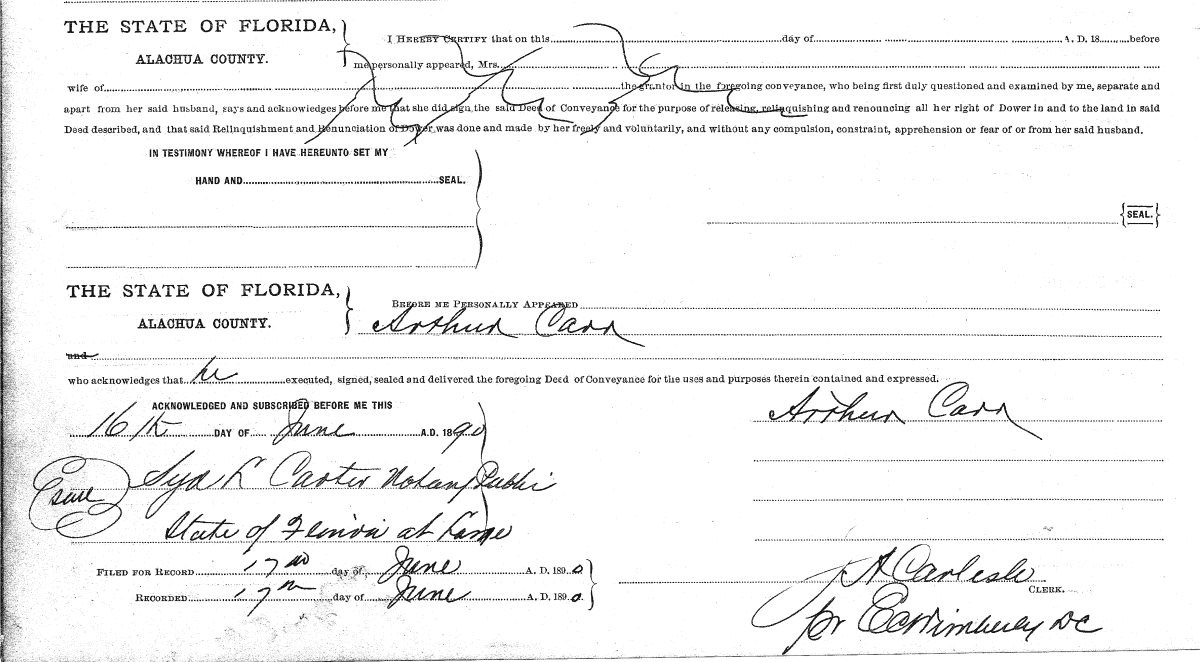 THE STATE OF FLORIDA,
ALACHUA COUNTY.
I HEREBY CERTIFY that on this day of A. D. 18 before
me personally appeared, Mrs.
wife of the grantor in the foregoing conveyance, who being first duly questioned and examined by me, separate and
apart from her said husband, says and acknowledges before me that she did sign the said Deed of Conveyance for the purpose of releasing, relinquishing and renouncing all her right of Dower in and to the land in said
Deed described, and that said Relinquishment and Renunciation of Dower was done and made by her freely and voluntarily, and without any compulsion, constraint, apprehension or fear of or from her said husband.
IN TESTIMONY WHEREOF I HAVE HEREUNTO SET MY
HAND AND SEAL.
SEAL.
THE STATE OF FLORIDA,
ALACHUA COUNTY.
BEFORE ME PERSONALLY APPEARED
Arthur Carr
and
who acknowledges that he executed, signed, sealed and delivered the foregoing Deed of Conveyance for the uses and purposes therein contained and expressed.
ACKNOWLEDGED AND SUBSCRIBED BEFORE ME THIS
16th DAY OF June A.D. 1890
Arthur Carr
Syd L Carter Notary Public
State of Florida at Large
FILED FOR RECORD 17th day of June A. D. 1890
RECORDED 17th day of June A. D. 1890
J A Carlisle
CLERK.
pr E C Wimberly DC